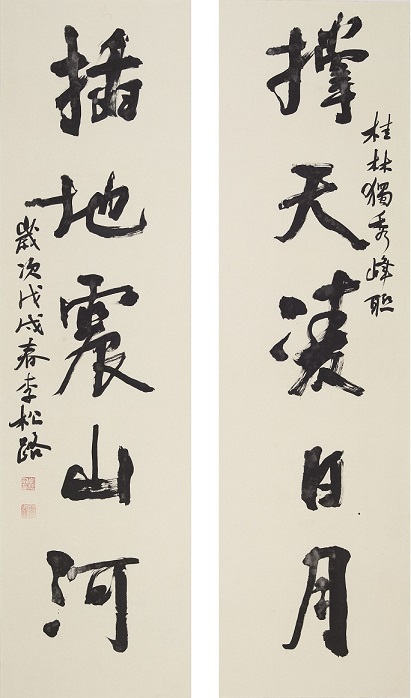 桂林獨秀峰聯
撑天凌日月
插地震山河
歲次戊戌春李松路